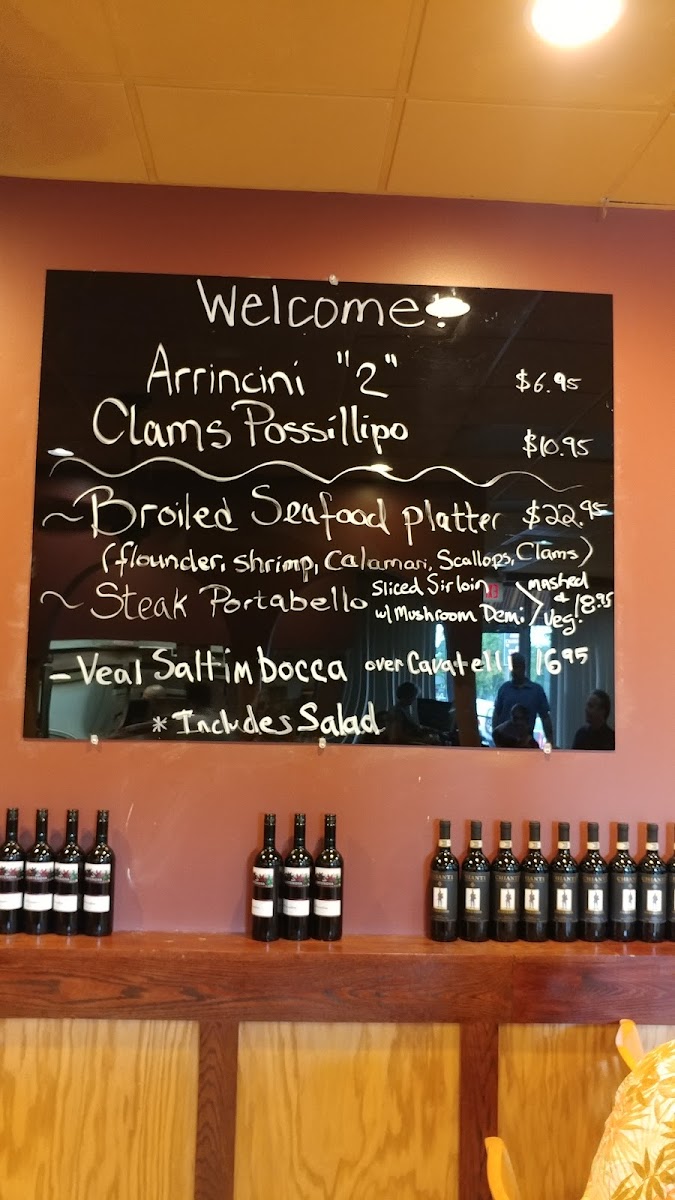 Welcome!
Arrincini "2" $6.95
Clams Possillipo $10.95
~Broiled Seafood platter $22.95
(flounder, shrimp, Calamari, Scallops, Clams)
~Steak Portabello Sliced Sirloin w/ Mushroom Demi > mashed & Veg. 18.95
-Veal Saltimbocca over Cavatelli 16.95
*Includes Salad
CHIANTI
CHIANTI
CHIANTI
CHIANTI